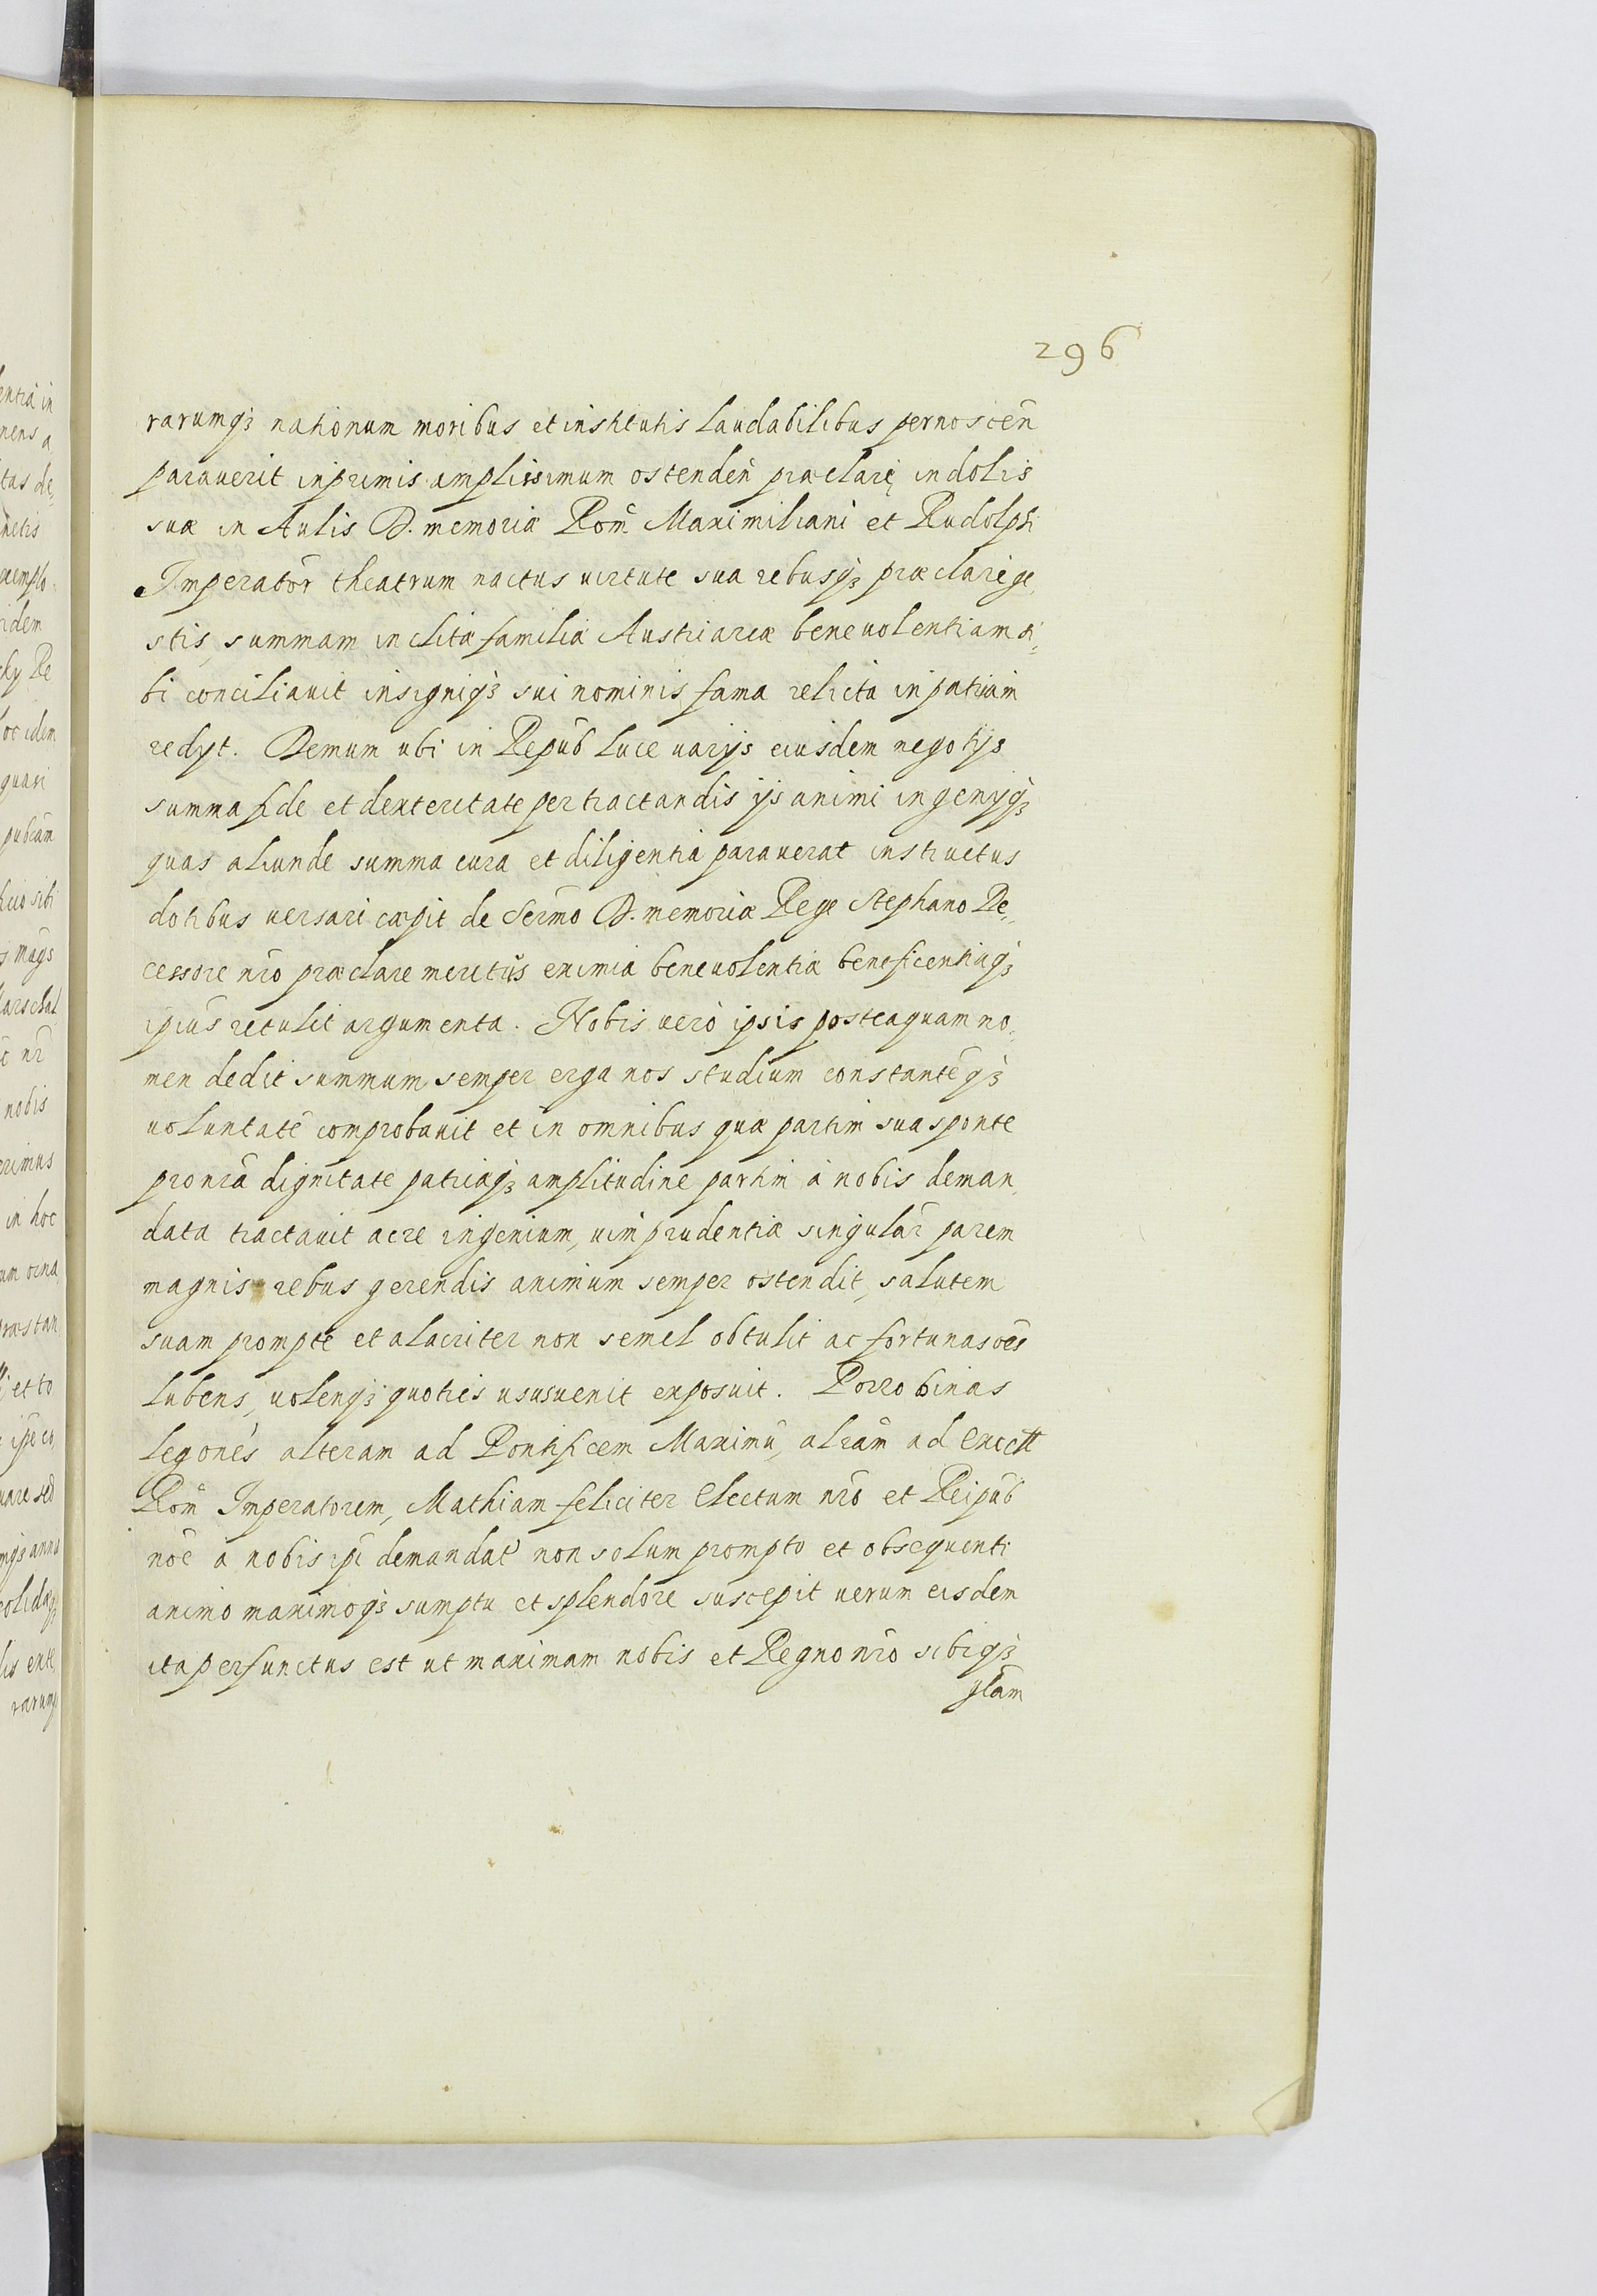 296
rarumqꝫ nationum moribus et institutis laudabilibus pernoscen̄
parauerit inprimis amplissimum ostenden̄ præclarę indolis
suæ in Aulis D. memoriæ Rom̄ Maximiliani et Rudolphi
Imperator̄ theatrum nactus uirtute sua rebusqꝫ præclare ge,
stis, summam inclitæ familiæ Austriacæ beneuolentiam si,
bi conciliauit insigniqꝫ sui nominis fama relicta in patriam
redyt. Demum ubi in Repub̄ luce uarijs eiusdem negotijs
summa fide et dexteritate pertractandis ijs animi ingenyqꝫ
quas aliunde summa cura et diligentia parauerat instructus
dotibus uersari cæpit de Serm̄o D. memoriæ Rege Stephano Re,
cessore nr̄o præclare meritus eximia beneuolentiæ beneficentiæqꝫ
ipiūs retulit argumenta. Nobis uerò ipsis posteaquam no,
men dedit summum semper erga nos studium constantēqꝫ
uoluntatē comprobauit et in omnibus quæ partim sua sponte
pro nrā dignitate patriæqꝫ amplitudine partim à nobis deman,
data tractauit acre ingenium, uim prudentiæ singular̄ parem
magnis rebus gerendis animum semper ostendit, salutem
suam prompte et alacriter non semel obtulit ac fortunas oēs
lubens, uolensqꝫ quoties usuuenit exposuit. Porro binas
legōnes alteram ad Pontificem Maximū, aliām ad Excell
Rom̄ Imperatorem, Mathiam feliciter Electum nr̄o et Reipub̄
nōe a nobis ipi demandat̄ non solum prompto et obsequenti
animo maximoqꝫ sumptu et splendore suscepit uerum eisdem
ita perfunctus est ut maximam nobis et Regno nr̄o sibiqꝫ
glām
entia in
nens a
tus de,
netis
exemplo
idem
chy Re
oc idem
quasi
publicam
sibi
mags
arschal
nr̄
nobis
erimus
in hoc
um orna
præstan
et to
ipe co
uare sed
mqꝫ annu
solidaqꝫ
lis exte
rarumq